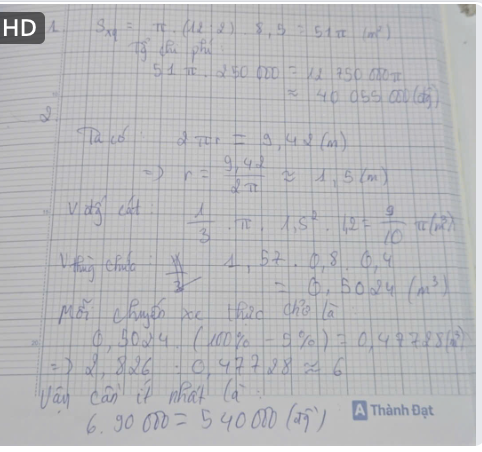 HD
1. Sxq = π . (12 : 2) . 8,5 = 51π (m²)
Tổng chi phí:
51π . 250 000 = 12 750 000π
≈ 40 055 000 (đg)
2
Ta có: 2πr = 9,42 (m)
=> r = 9,42 / 2π ≈ 1,5 (m)
V đg cát: 1/3 . π . 1,5² . 1,2 = 9/10 π (m³)
V thùng chứa: 1,57 . 0,8 . 0,4
= 0,5024 (m³)
Mỗi chuyến xe thực chở là
0,5024 . (100% - 5%) = 0,47728 (m³)
=> 2,826 : 0,47728 ≈ 6
Vậy cần ít nhất là:
6. 90 000 = 540 000 (đg)
Thành Đạt